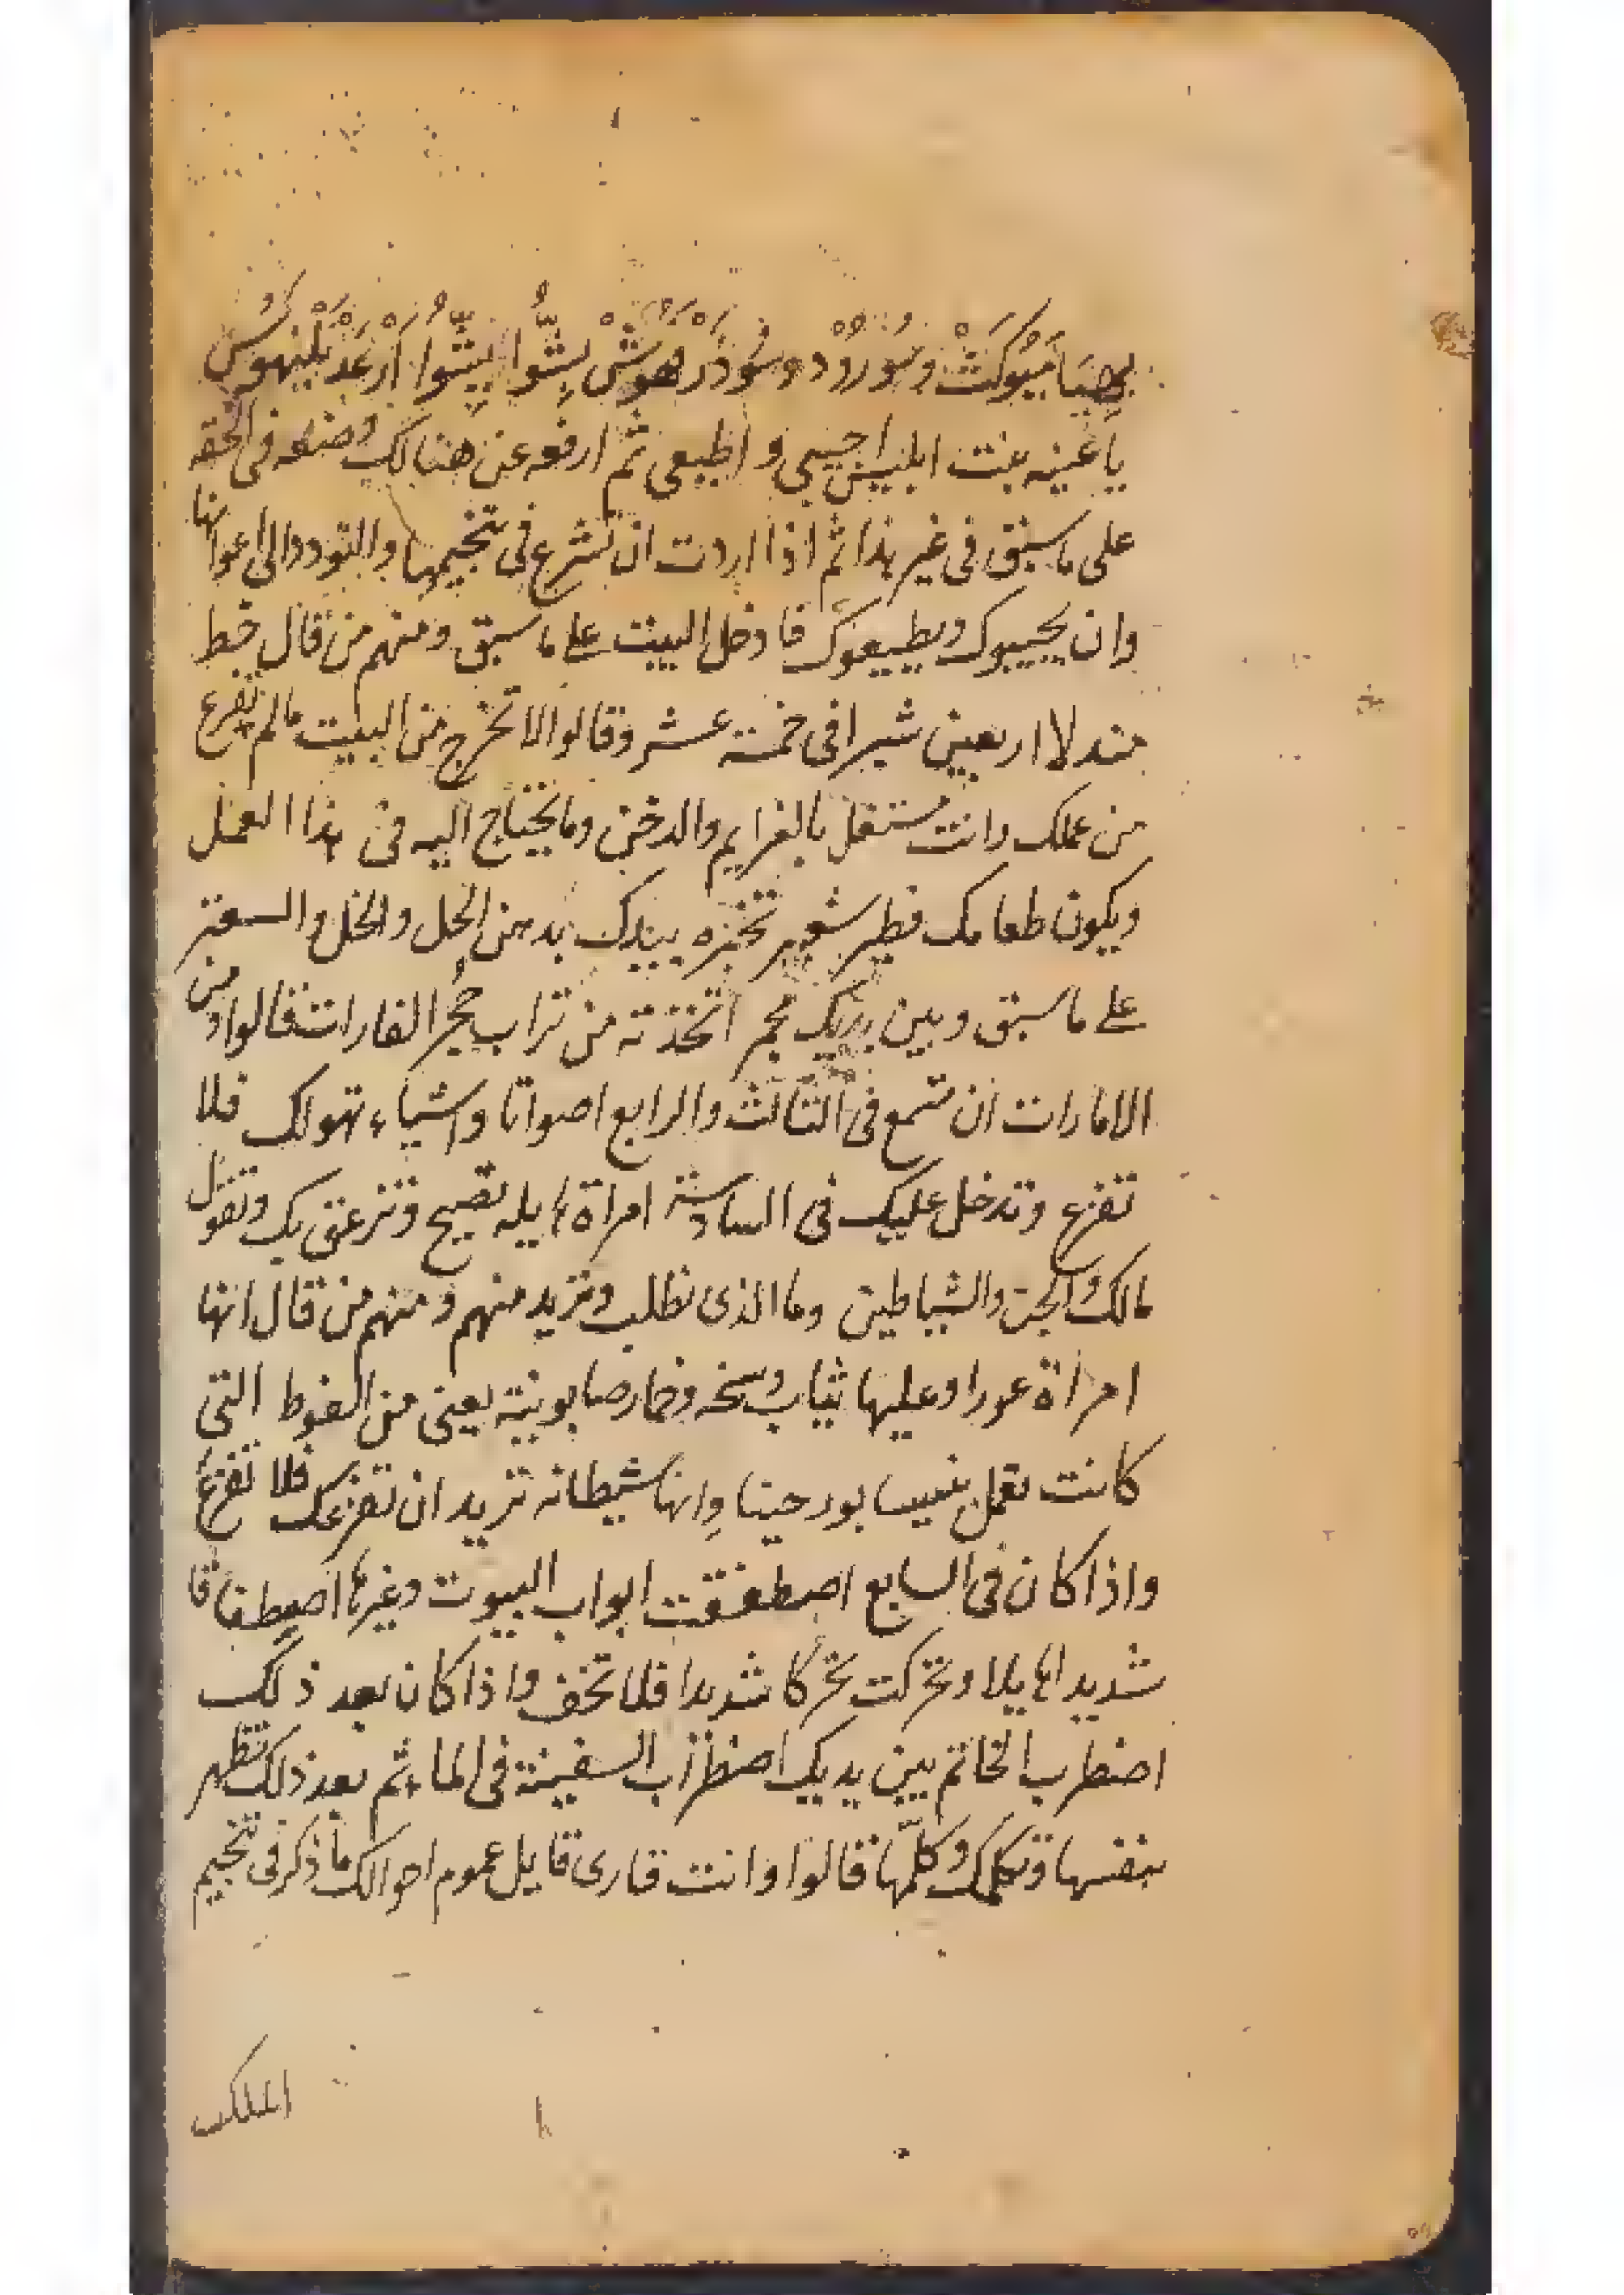 يا عينه بنت ابليس اجيبي و اطيعي ثم ارفعه عن هنالك وضعه في الحقه
على ما سبق في غير هذا ثم اذا اردت ان تشرع في تنجيمها والتودد الى اعوانها
وان يجيبوك ويطيعوك فادخل البيت على ما سبق ومنهم من قال خط
مندلا اربعين شبرا في خمسة عشر وقالوا لا تخرج من البيت مالم تفرغ
من عملك وانت مشتغل بالعزايم والدخن وما تحتاج اليه في هذا العمل
ويكون طعامك فطير شعير تخبزه بيدك بدهن الحل والخل والسعتر
على ما سبق وبين يديك مجمر اتخذته من تراب جحر الفارات فقالوا ومن
الامارات ان تسمع في الثالث والرابع اصواتا واشياء تهولك فلا
تفزع وتدخل عليك في السادسة امراة هايله تصيح وتزعق بك وتقول
مالك والجن والشياطين وما الذى تطلب وتريد منهم ومنهم من قال انها
امراة عورا وعليها ثياب وسخه وخمار صابونية يعني من الفوط التي
كانت تعمل بنيسابور حينا وانها شيطانه تريد ان تفزعك فلا تفزع
واذا كان في السابع اصطفقت ابواب البيوت وغيرها اصطفاقا
شديدا هايلا وتحركت تحركا شديدا فلا تخف واذا كان بعد ذلك
اضطرب الخاتم بين يديك اضطراب السفينة في الماء ثم بعد ذلك تظهر
بنفسها وتكلمك وكلمها قالوا وانت قارى قايل عموم احوالك ما ذكر في تنجيم
الملك